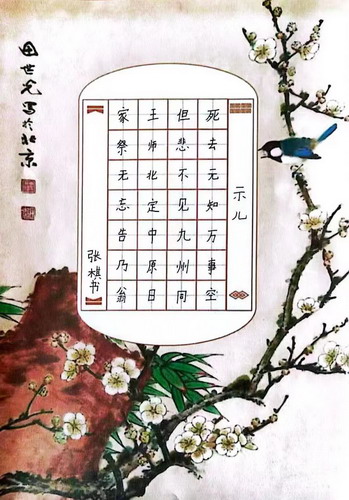 示儿
死去元知万事空
但悲不见九州同
王师北定中原日
家祭无忘告乃翁
张棋书
田世光写於北京